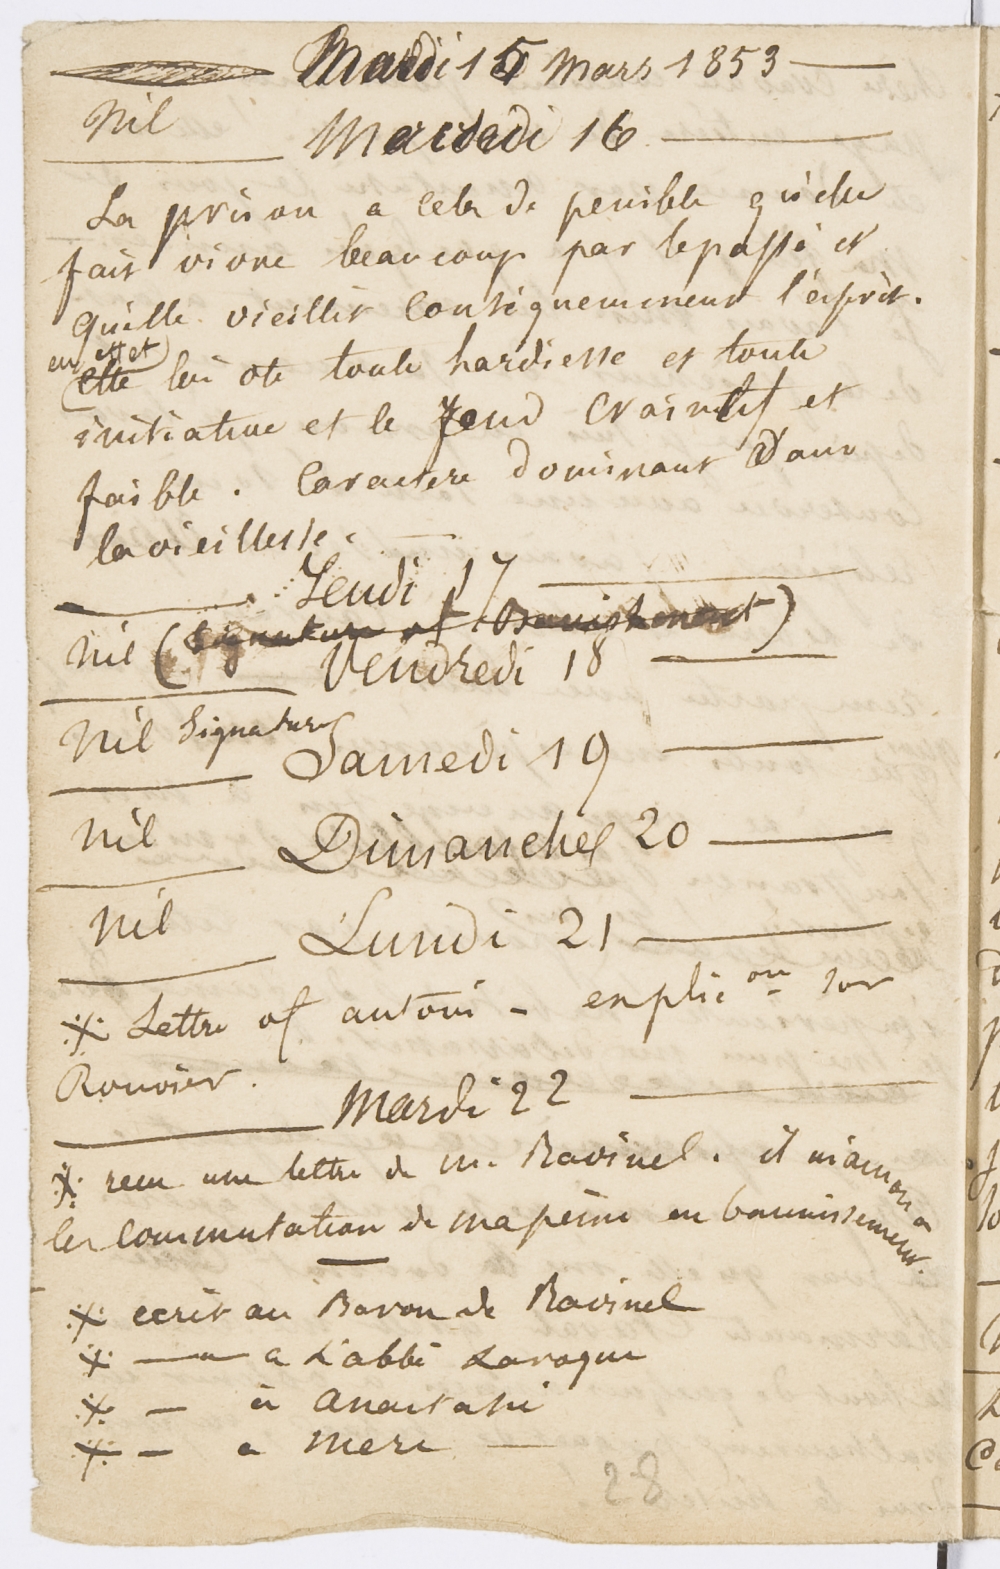 Mardi 15 Mars 1853
Nil
Mercredi 16
La prison a cela de penible qu'elle
fait vivre beaucoup par le passé et
qu'elle vieillit consequemment l'esprit.
en effet
elle lui ote toute hardiesse et toute
initiative et le rend craintif et
faible. Caractere dominant dans
la vieillesse.
Jeudi 17
Nil (Signature of Banishment)
Vendredi 18
Nil Signature
Samedi 19
Nil
Dimanche 20
Nil
Lundi 21
Lettre of antoni - explic on sur
Rouvier.
Mardi 22
recu une lettre de m. Ravinel. il m'annona
la commutation de ma peine en bannissement.
ecrit au Baron de Ravinel
— a L'abbé Laroque
— à Anastasie
— a Mere —
28